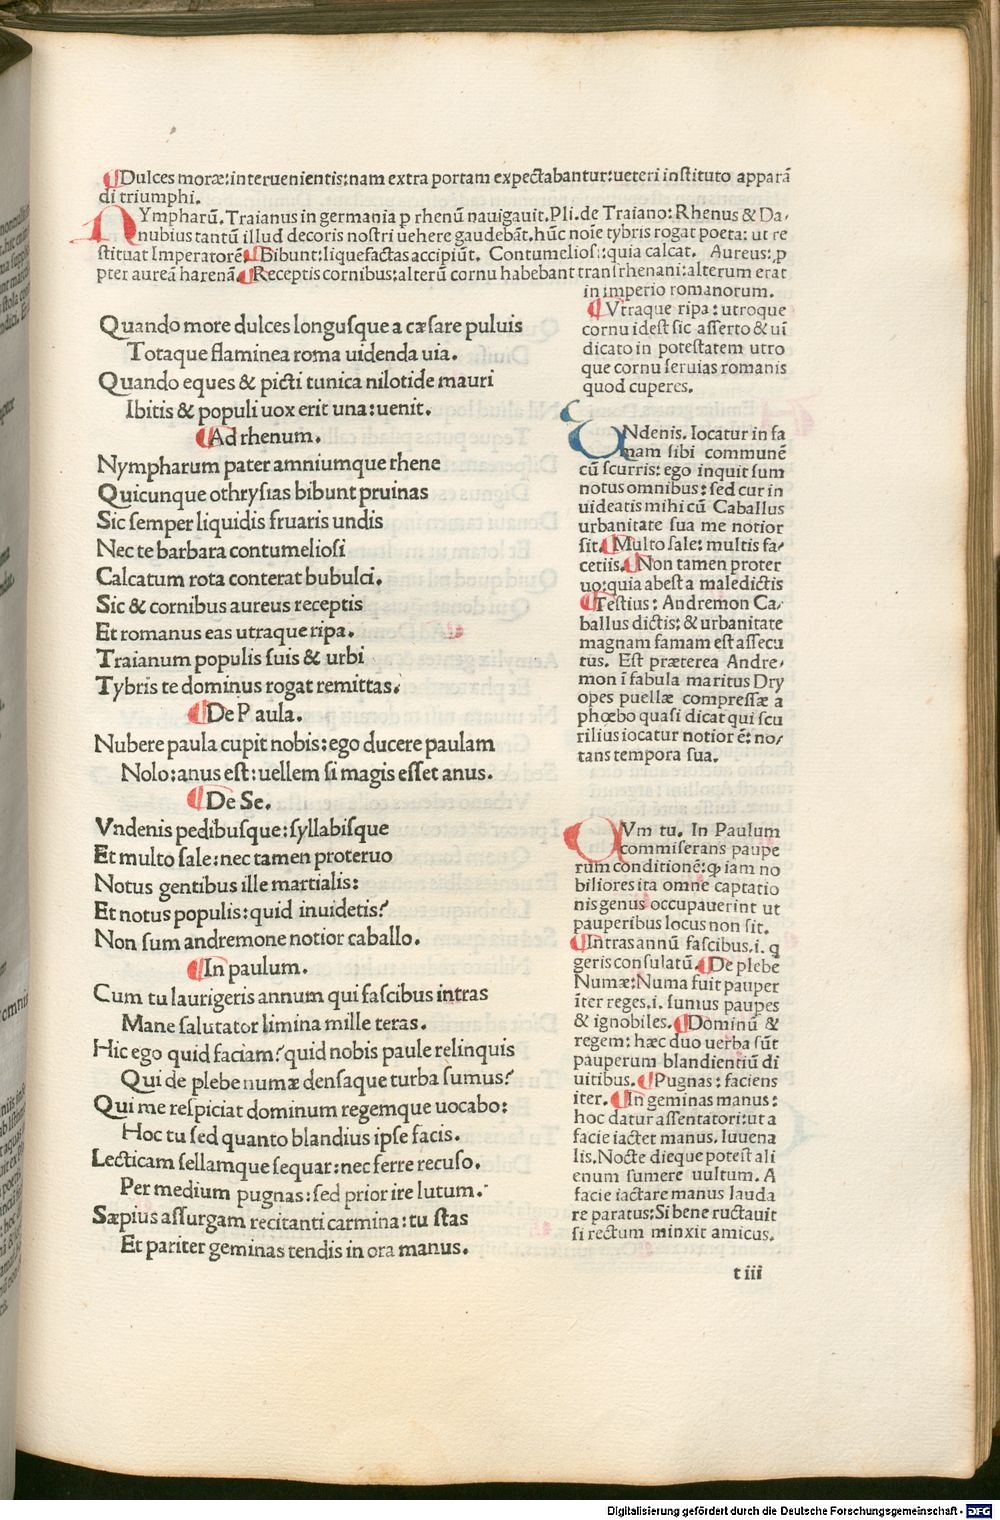 ¶Dulces moræ:interuenientis:nam extra portam expectabantur:ueteri instituto apparā
di triumphi.
NYmpharū. Traianus in germania p rhenū nauigauit.Pli.de Traiano: Rhenus & Da-
nubius tantū illud decoris nostri uehere gaudebāt.hūc noīe tybris rogat poeta: ut re
stituat Imperatorē.¶Bibunt:liquefactas accipiūt. Contumeliosi:quia calcat. Aureus:p
pter aureā harenā.¶Receptis cornibus:alterū cornu habebant transrhenani:alterum erat
in imperio romanorum.
¶Vtraque ripa: utroque
cornu idest sic asserto & uī
dicato in potestatem utro
que cornu seruias romanis
quod cuperes.
Quando more dulces longusque a cæsare puluis
Totaque flaminea roma uidenda uia.
Quando eques & picti tunica nilotide mauri
Ibitis & populi uox erit una:uenit.
¶Ad rhenum.
Nympharum pater amniumque rhene
Quicunque othrysias bibunt pruinas
Sic semper liquidis fruaris undis
Nec te barbara contumeliosi
Calcatum rota conterat bubulci.
Sic & cornibus aureus receptis
Et romanus eas utraque ripa.
Traianum populis suis & urbi
Tybris te dominus rogat remittas.
¶De Paula.
Nubere paula cupit nobis:ego ducere paulam
Nolo:anus est:uellem si magis esset anus.
¶De Se.
Vndenis pedibusque:syllabisque
Et multo sale:nec tamen proteruo
Notus gentibus ille martialis:
Et notus populis:quid inuidetis?
Non sum andremone notior caballo.
¶In paulum.
Cum tu laurigeris annum qui fascibus intras
Mane salutator limina mille teras.
Hic ego quid faciam?quid nobis paule relinquis
Qui de plebe numæ densaque turba sumus?
Qui me respiciat dominum regemque uocabo:
Hoc tu sed quanto blandius ipse facis.
Lecticam sellamque sequar:nec ferre recuso.
Per medium pugnas:sed prior ire lutum.
Sæpius assurgam recitanti carmina:tu stas
Et pariter geminas tendis in ora manus.
UNdenis. Iocatur in fa
mam sibi communē
cū scurris: ego inquit sum
notus omnibus: sed cur in
uideatis mihi cū Caballus
urbanitate sua me notior
sit.¶Multo sale: multis fa-
cetiis.¶Non tamen proter
uo:quia abest a maledictis
¶Testius: Andremon Ca-
ballus dictis: & urbanitate
magnam famam est assecu
tus. Est præterea Andre-
mon ī fabula maritus Dry
opes puellæ compressæ a
phœbo quasi dicat qui scu
rilius iocatur notior ē: no-
tans tempora sua.
CVm tu. In Paulum
commiserans paupe
rum conditionē:ꝙ iam no
biliores ita omne captatio
nis genus occupauerint ut
pauperibus locus non sit.
¶Intras annū fascibus.i. q
geris consulatū.¶De plebe
Numæ:Numa fuit pauper
īter reges.i. sumus paupes
& ignobiles.¶Dominū &
regem: hæc duo uerba sūt
pauperum blandientiū di
uitibus.¶Pugnas: faciens
iter.¶In geminas manus:
hoc datur assentatori:ut a
facie iactet manus. Iuuena
lis.Nocte dieque potest ali
enum sumere uultum. A
facie iactare manus lauda
re paratus:Si bene ructauit
si rectum minxit amicus.
t iii
Digitalisierung gefördert durch die Deutsche Forschungsgemeinschaft - DFG